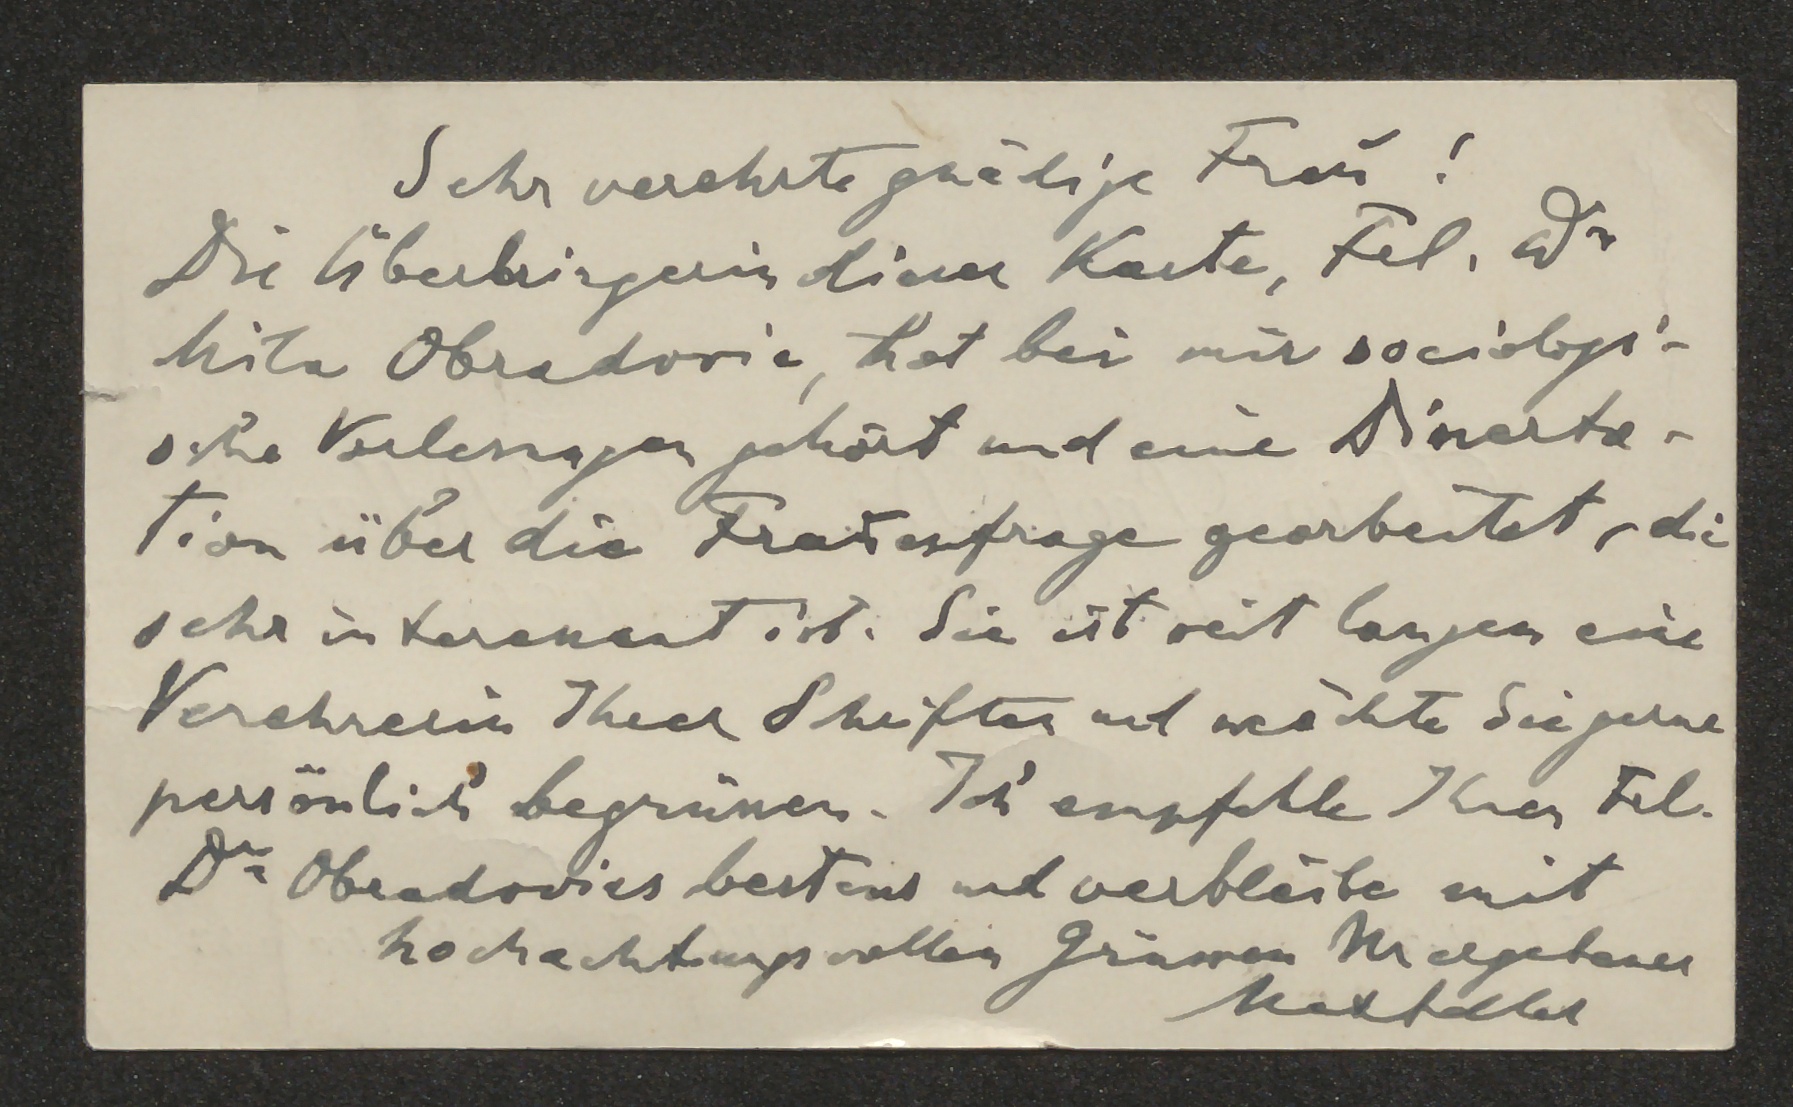 Sehr verehrte gnädige Frau!
Die Überbringerin dieser Karte, Frl. Dr
Mila Obradovic, hat bei mir sociologi-
sche Vorlesungen gehört und eine Disserta-
tion über die Frauenfrage gearbeitet, die
sehr interessant ist. Sie ist seit langem eine
Verehrerin Ihrer Schriften und möchte Sie gerne
persönlich begrüssen. Ich empfehle Ihnen Frl.
Dr Obradovics bestens und verbleibe mit
hochachtungsvollen Grüssen Ihr ergebener
Max Adler